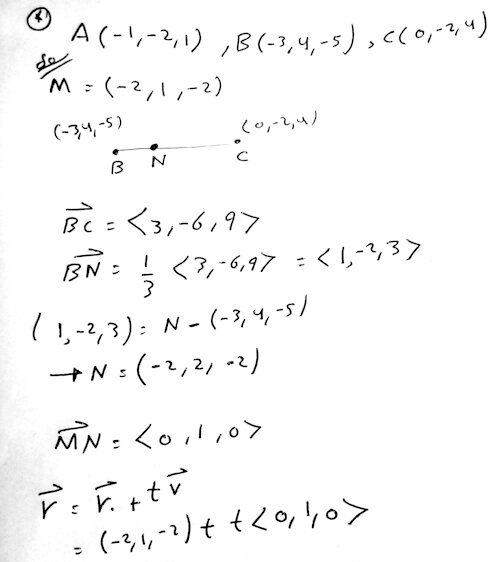 A(-1,-2,1) , B(-3,4,-5) , C(0,-2,4)
M = (-2,1,-2)
(-3,4,-5) (0,-2,4)
B N C
BC = <3,-6,9>
BN = 1/3 <3,-6,9> = <1,-2,3>
(1,-2,3) = N - (-3,4,-5)
→ N = (-2,2,-2)
MN = <0,1,0>
r = r. + t v
= (-2,1,-2) + t <0,1,0>